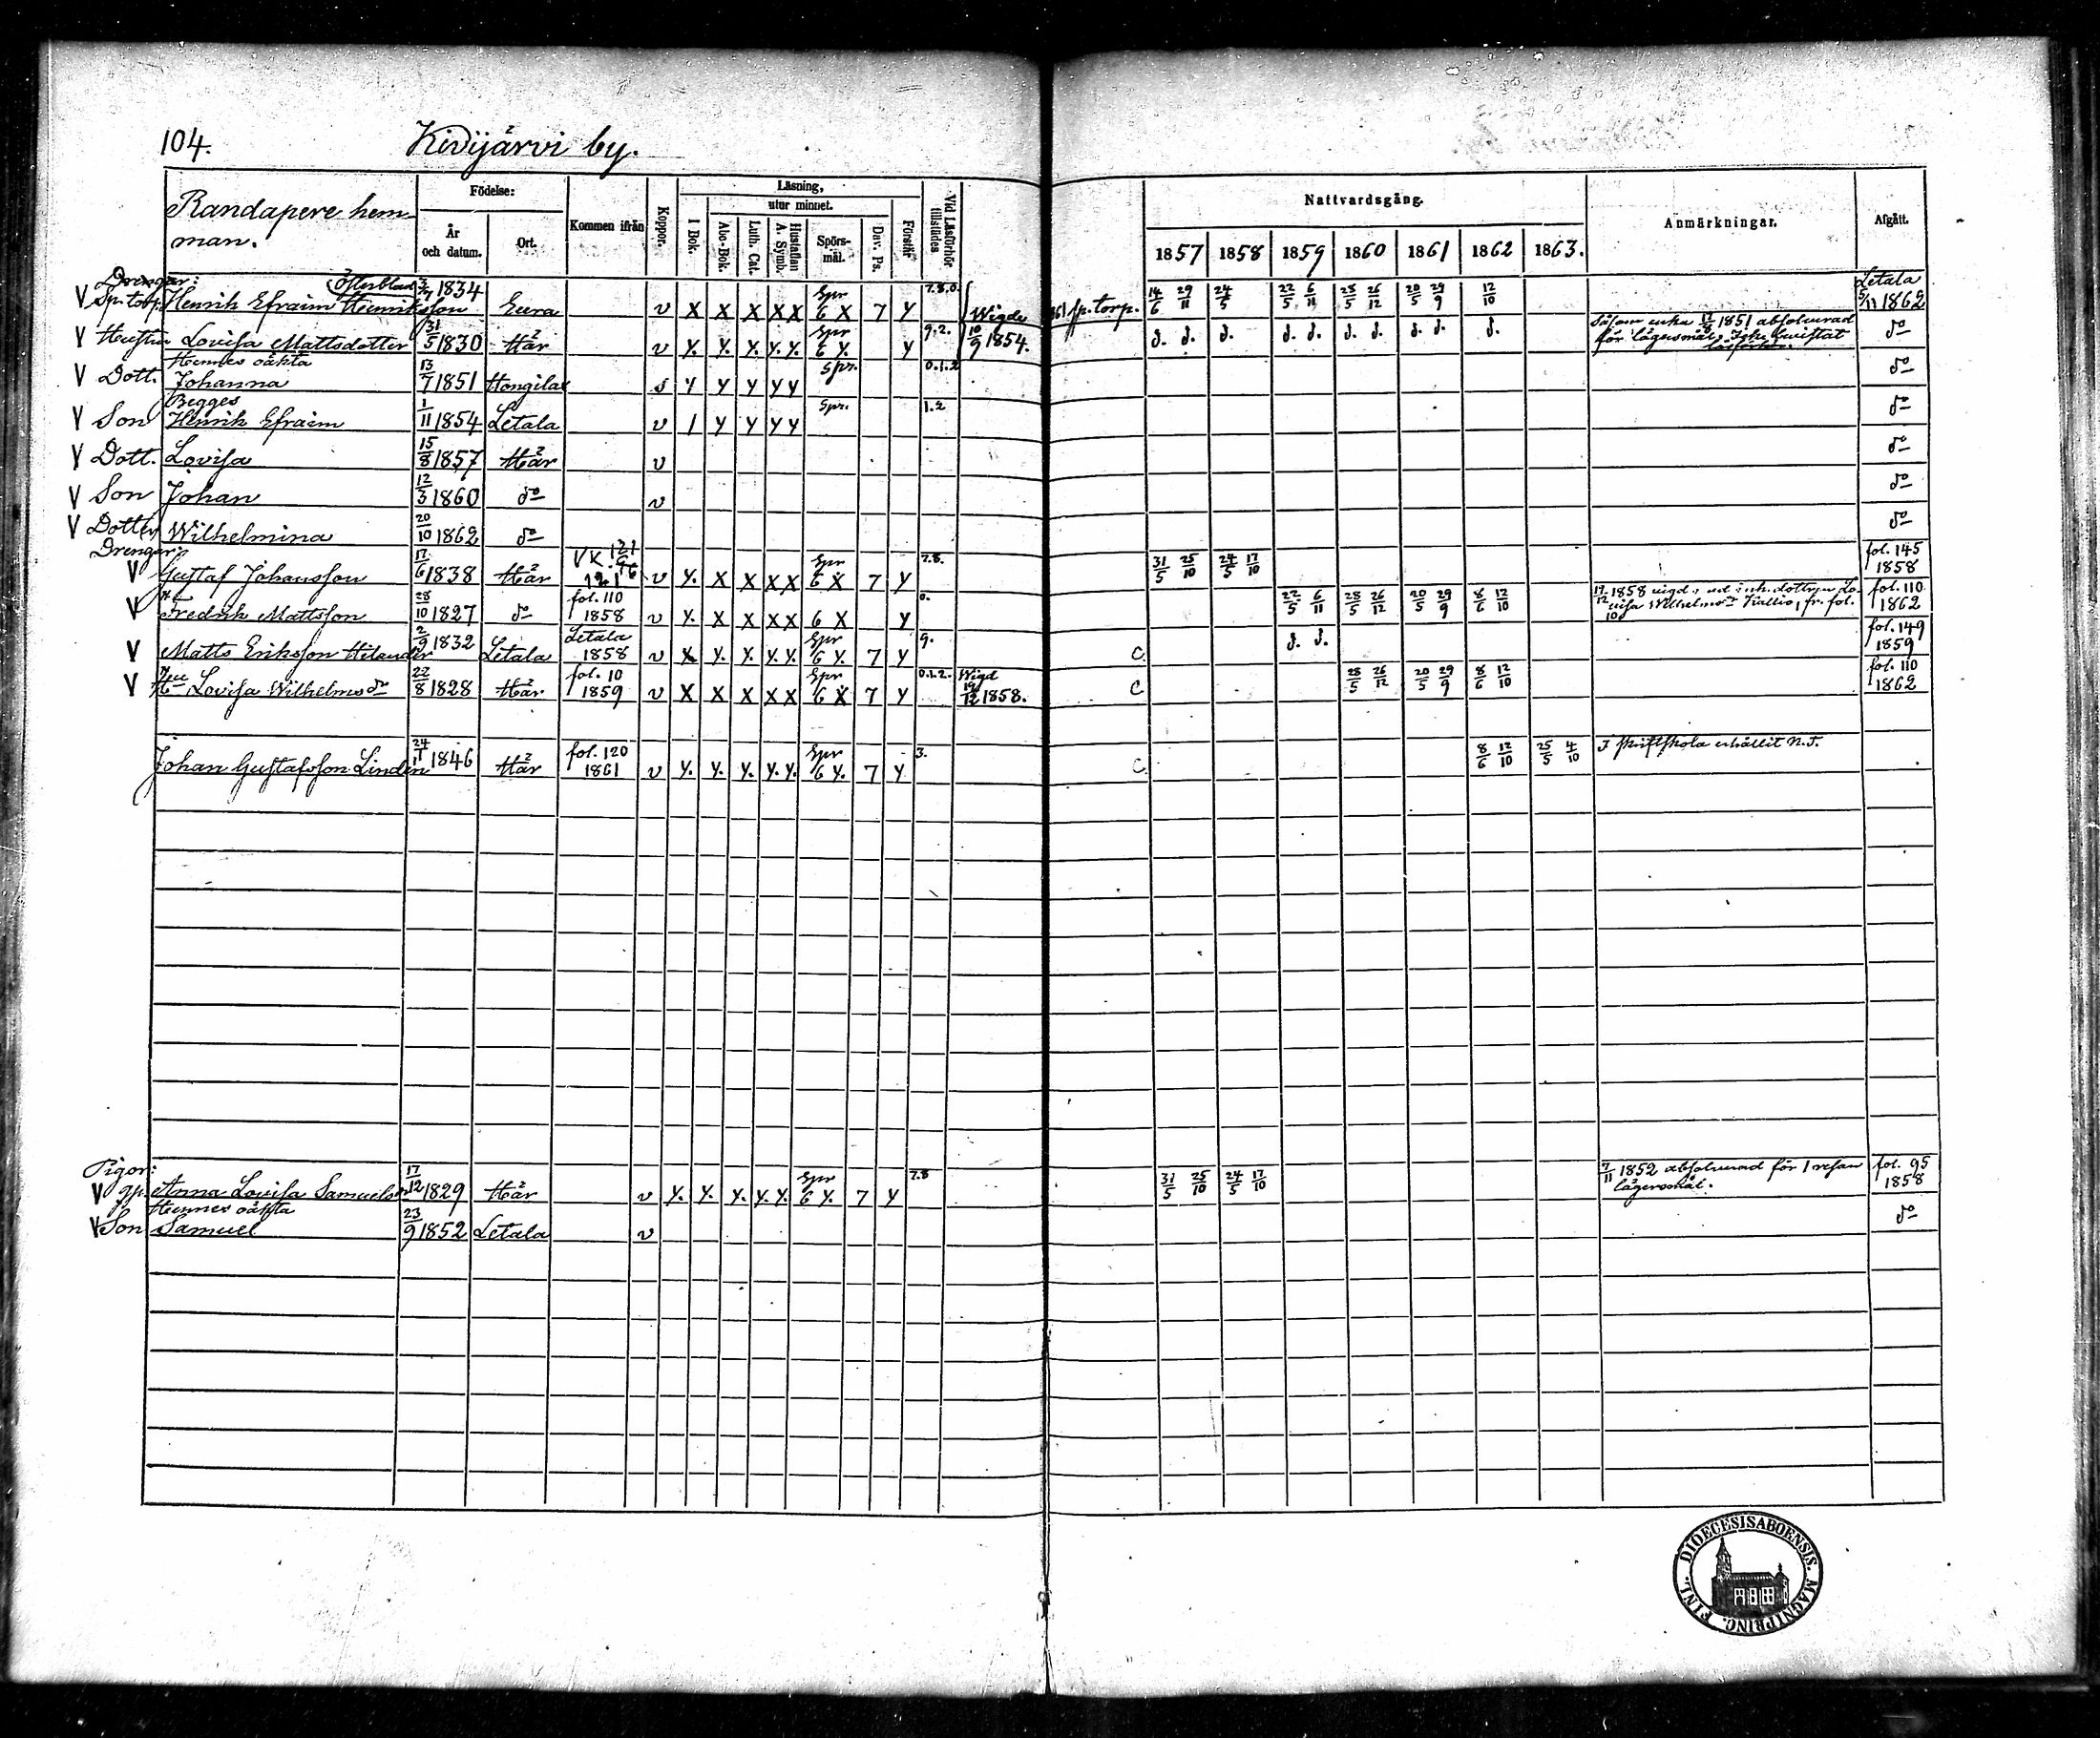 104. Kivijärvi by.
Randapere hem-
man.
Födelse:
År och datum.
Ort.
Kommen ifrån
Koppor.
Läsning,
utur minnet.
I Bok.
Abc-Bok.
Luth. Cat.
Hustaflan A. Symb.
Spörs-mål.
Dav. Ps.
Förstår
Vid Läsförhör tillstädes
Nattvardsgång.
1857 1858 1859 1860 1861 1862 1863.
Anmärkningar.
Afgått.
Drengar:
V Sp. torp. Henrik Efraim Henriksson Österblad 1834 Eura v X X X X X Spr 6 X 7 Y 7.8.0. Wigde sp. torp. 14/6 29/11 24/5 22/5 6/11 28/5 26/12 20/5 29/9 12/10 Letala 5/11 1862
V Hustru Lovisa Mattsdotter 31/5 1830 Här v Y. Y. Y. Y. Y. Spr 6 Y. Y 9.2. 10/9 1854. d. d. d. d. d. d. d. d. d. d. Såsom enka 1851 absolverad för lägersmål. do
Hennes oäkta
V Dott. Johanna 13/7 1851 Hongilax s Y Y Y Y Y Spr. 0.1.2 do
Begges
V Son Henrik Efraim 1/11 1854 Letala v 1 Y Y Y Y Spr. 1.2 do
V Dott. Lovisa 15/8 1857 Här v do
V Son Johan 12/3 1860 do v do
V Dotter Wilhelmina 20/10 1862 do do
Drengar:
V Gustaf Johansson 17/6 1838 Här v Y. X X X X Spr 6 X 7 Y 7.8. 31/5 25/10 24/5 17/10 fol. 145 1858
V Fredrik Mattsson 28/10 1827 do fol. 110 1858 v Y. X X X X 6 X Y 0. 22/5 6/11 28/5 26/12 20/5 29/9 8/6 12/10 1858 vigd v. inh. dottern Lovisa Wilhelmsdr Kallio, fr. fol. 10 fol. 110 1862
V Matts Eriksson Helander 2/9 1832 Letala Letala 1858 v X Y. Y. Y. Y. Spr 6 Y. 7 Y 9. C. d. d. fol. 149 1859
V Hu Lovisa Wilhelmsdr 22/8 1828 Här fol. 10 1859 v X X X X X Spr 6 X 7 Y 0.1.2. Wigd 19/12 1858. C 28/5 26/12 20/5 29/9 8/6 12/10 fol. 110 1862
Johan Gustafsson Lindén 24/11 1846 Här fol. 120 1861 v Y. Y. Y. Y. Y. Spr 6 Y. 7 Y 3. C. 8/6 12/10 25/5 4/10 I skriftskola erhållit N.T.
Pigor:
V Anna Lovisa Samuelsdr 17/12 1829 Här v Y. Y. Y. Y. Y. Spr 6 Y. 7 Y 7.8 31/5 25/10 24/5 17/10 7/11 1852 absolverad för 1 resan lägersmål. fol. 95 1858
Hennes oäkta
V Son Samuel 23/9 1852 Letala v do
DIOECESIS ABOENSIS. MAGNI PRINC. FINL.